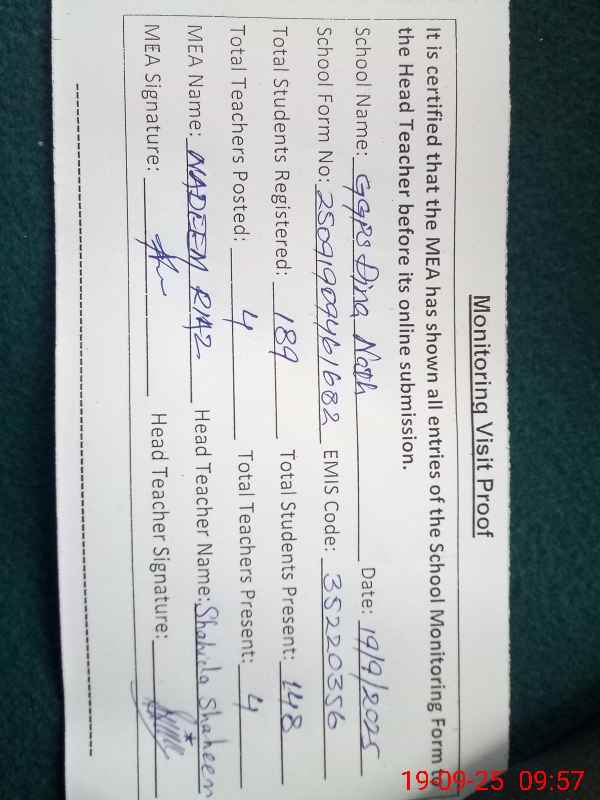 Monitoring Visit Proof
It is certified that the MEA has shown all entries of the School Monitoring Form to
the Head Teacher before its online submission.
School Name: GGPS Dina Nath Date: 19/9/2025
School Form No: 25091909461682 EMIS Code: 35220356
Total Students Registered: 189 Total Students Present: 148
Total Teachers Posted: 4 Total Teachers Present: 4
MEA Name: NADEEM RIAZ Head Teacher Name: Shahida Shaheen
MEA Signature: Head Teacher Signature:
19-09-25 09:57